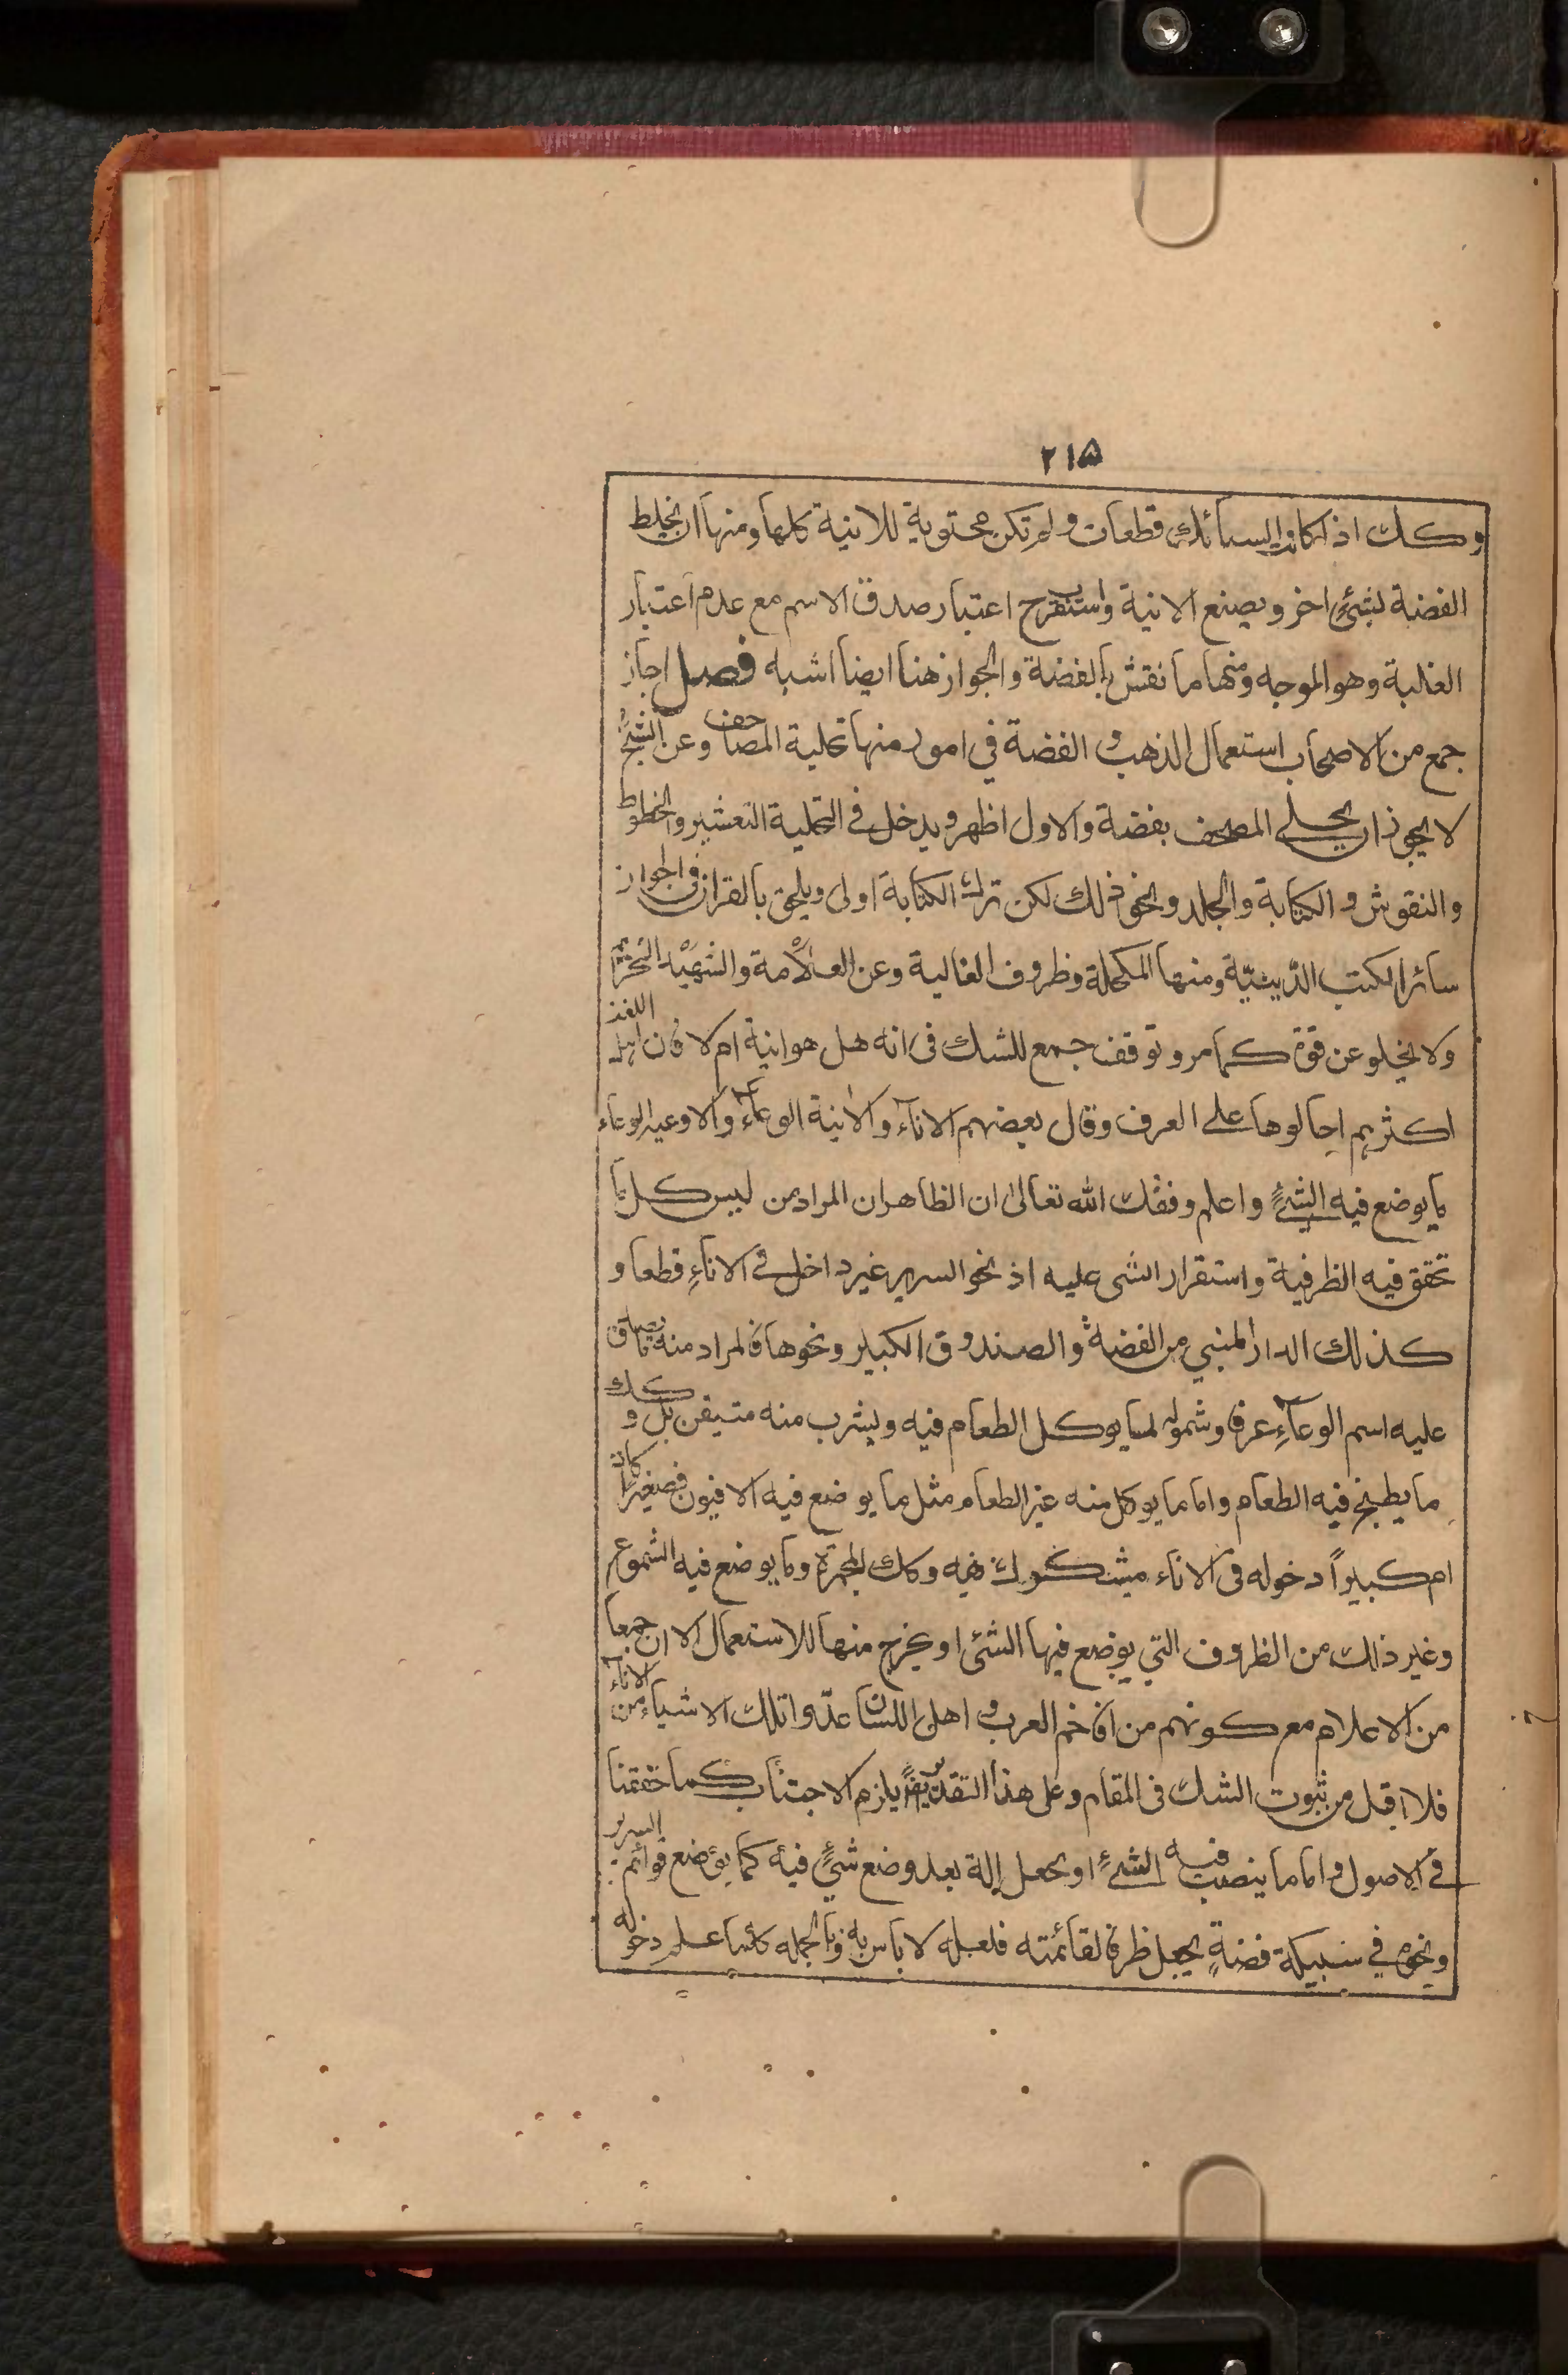 ٢١٥
وكك اذا كانت السبائك قطعات ولم تكن محتوية للانية كلها ومنها ان يخلط
الفضة بشئ اخر ويصنع الانية واستقرب اعتبار صدق الاسم مع عدم اعتبار
الغلبة وهو الموجه ومنها ما نقش بالفضة والجواز هنا ايضا اشبه فصل اجاز
جمع من الاصحاب استعمال الذهب و الفضة في امور منها تحلية المصاحف وعن الشيخ
لا يجوز ان يحلى المصحف بفضة والاول اظهر ويدخل في التحلية التعشير والخطوط
والنقوش و الكتابة والجلد ونحو ذلك لكن ترك الكتابة اولى ويلحق بالقران في الجواز
سائر الكتب الدّينيّة ومنها المكحلة وظروف الغالية وعن العلّامة والشهيد التحريم
ولا يخلو عن قوة كما مر وتوقف جمع للشك فى انه هل هو انية ام لا فان اهل اللغة
اكثرهم احالوها على العرف وقال بعضهم الاناء والانية الوعاء والاوعية الوعاء
ما يوضع فيه الشئ واعلم وفقك الله تعالى ان الظاهر ان المراد من ليس كل ما
تحقق فيه الظرفية واستقرار الشى عليه اذ نحو السرير غير داخل في الاناء قطعا و
كذلك الدار المبني من الفضة والصندوق الكبير ونحوها فالمراد منه ما صدق
عليه اسم الوعاء عرفا وشموله لما يوكل الطعام فيه ويشرب منه متيقن بل وكك
ما يطبخ فيه الطعام واما ما يوكل منه غير الطعام مثل ما يوضع فيه الافيون صغيرا كان
ام كبيراً دخوله فى الاناء مشكوك فيه وكك المجمرة وما يوضع فيه الشموع
وغير ذلك من الظروف التي يوضع فيها الشئ او يخرج منها للاستعمال الا ان جمعا
من الاعلام مع كونهم من افاخم العرب و اهل اللسان عدّوا تلك الاشياء من الاناء
فلا اقل من ثبوت الشك فى المقام وعلى هذا التقدير ايضاً يلزم الاجتناب كما حققنا
في الاصول و اما ما ينصب فيه الشئ او يجعل الة بعد وضع شئ فيه كما يوضع قوائم السرير
ونحوه في سبيكة فضة يجعل ظرفا لقائمته فلعله لا باس به وبالجمله كلما علم دخوله